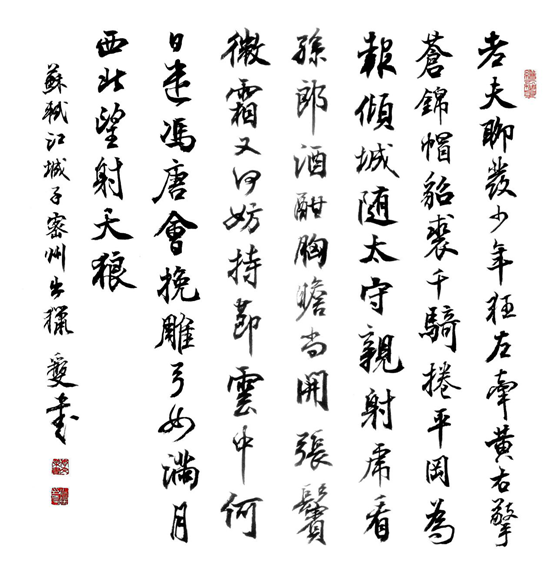 老夫聊發少年狂左牽黃右擎
蒼錦帽貂裘千騎捲平岡為
報傾城隨太守親射虎看
孫郎酒酣胸膽尚開張鬢
微霜又何妨持節雲中何
日遣馮唐會挽雕弓如滿月
西北望射天狼
蘇軾江城子密州出獵 書